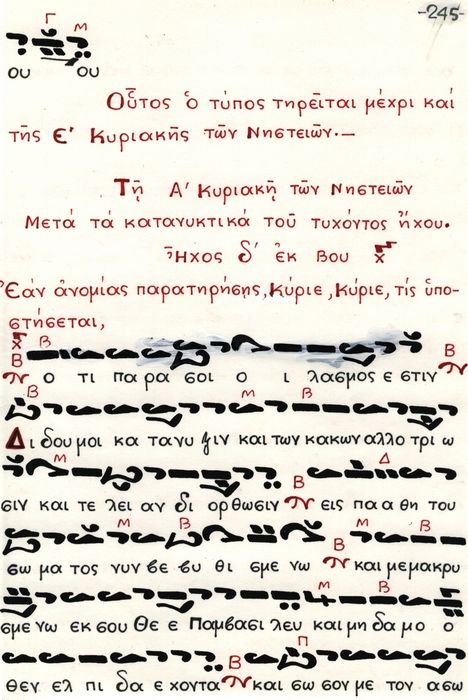 -245-
Γ Μ
ου ου
Οὗτος ὁ τύπος τηρεῖται μέχρι καί
τῆς Ε' Κυριακῆς τῶν Νηστειῶν.-
Τῇ Α' Κυριακῇ τῶν Νηστειῶν
Μετά τά κατανυκτικά τοῦ τυχόντος ἤχου.
Ἦχος δ' ἐκ Βου
Ἐάν ἀνομίας παρατηρήσῃς, Κύριε, Κύριε, τίς ὑπο-
στήσεται,
Β Β
Β ο τι πα ρα σοι ο ι λασμος ε στιν
Β Μ Β
Δι δου μοι κα τα νυ ξιν και των κακων αλλο τρι ω
Μ Δ
σιν και τε λει αν δι ορθωσιν Β εις πα α θη του
Μ Β Μ Β Μ Β
σω μα τος νυν βε βυ θι σμε νω και μεμακρυ
Μ Β
σμε νω εκ σου Θε ε Παμβασι λευ και μη δα μο ο
Β Π
θεν ελ πι δα ε χοντα και σω σον με τον α σω